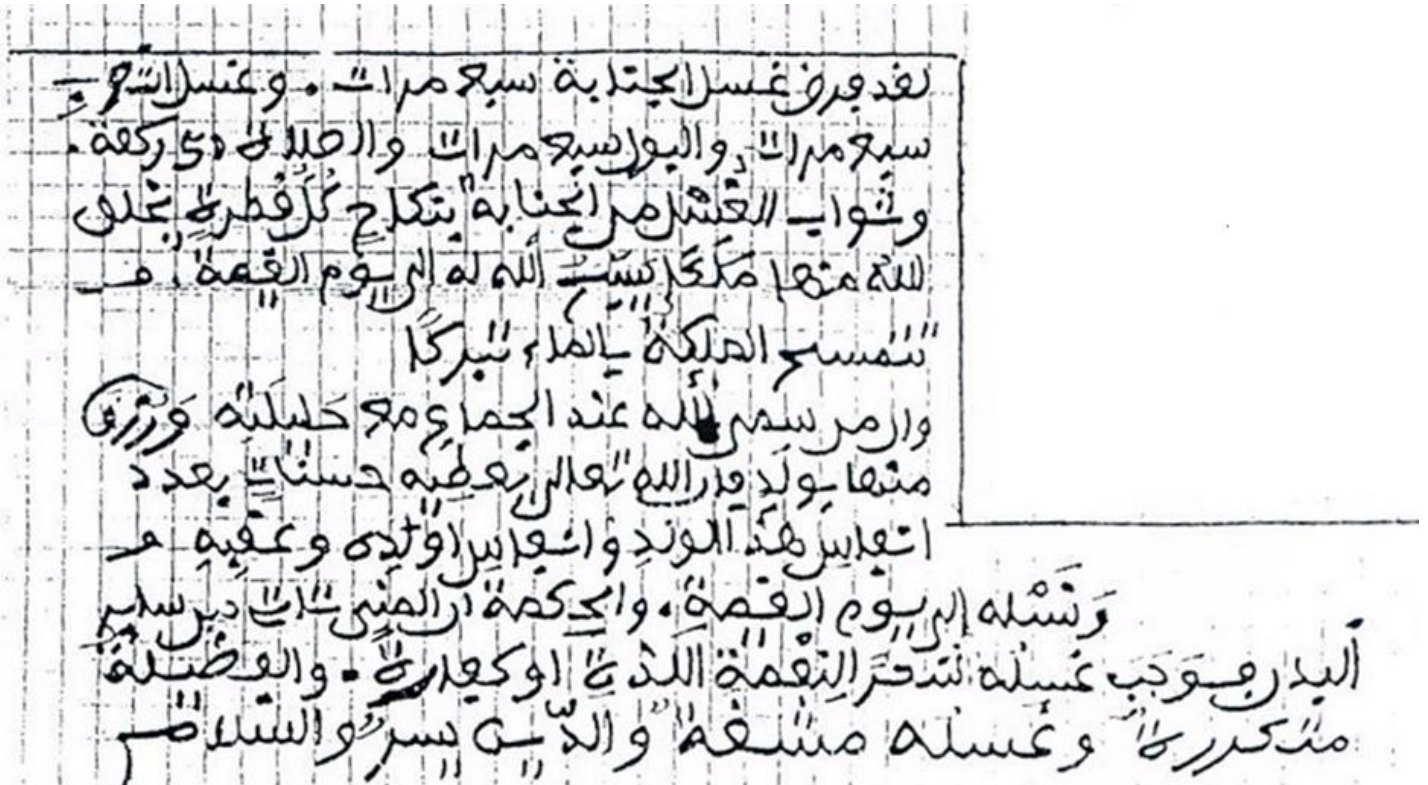 لقد فرض غسل الجنابة سبع مرات . وغسل
سبع مرات والبول سبع مرات والصلاة ركعة .
وثواب الغسل من الجنابة بنكاح كل قطرة يخلق
الله منها ملكا يسبح الله له الى يوم القيمة .
تتمسح الملئكة بالماء تبركا
وان من سمى الله عند الجماع مع حليلته ورزق
منها بولد فان الله تعالى يعطيه حسنات بعدد
انفاس هذا الولد وانفاس اولده وعقبه و
ونسله الى يوم القيمة . والحكمة ان المني نات من ساير
البدن فوجب غسله شكرا لنعمة اللذة او كفارة . والفضيلة
متكررة وغسله مشقة والدين يسر والسلام